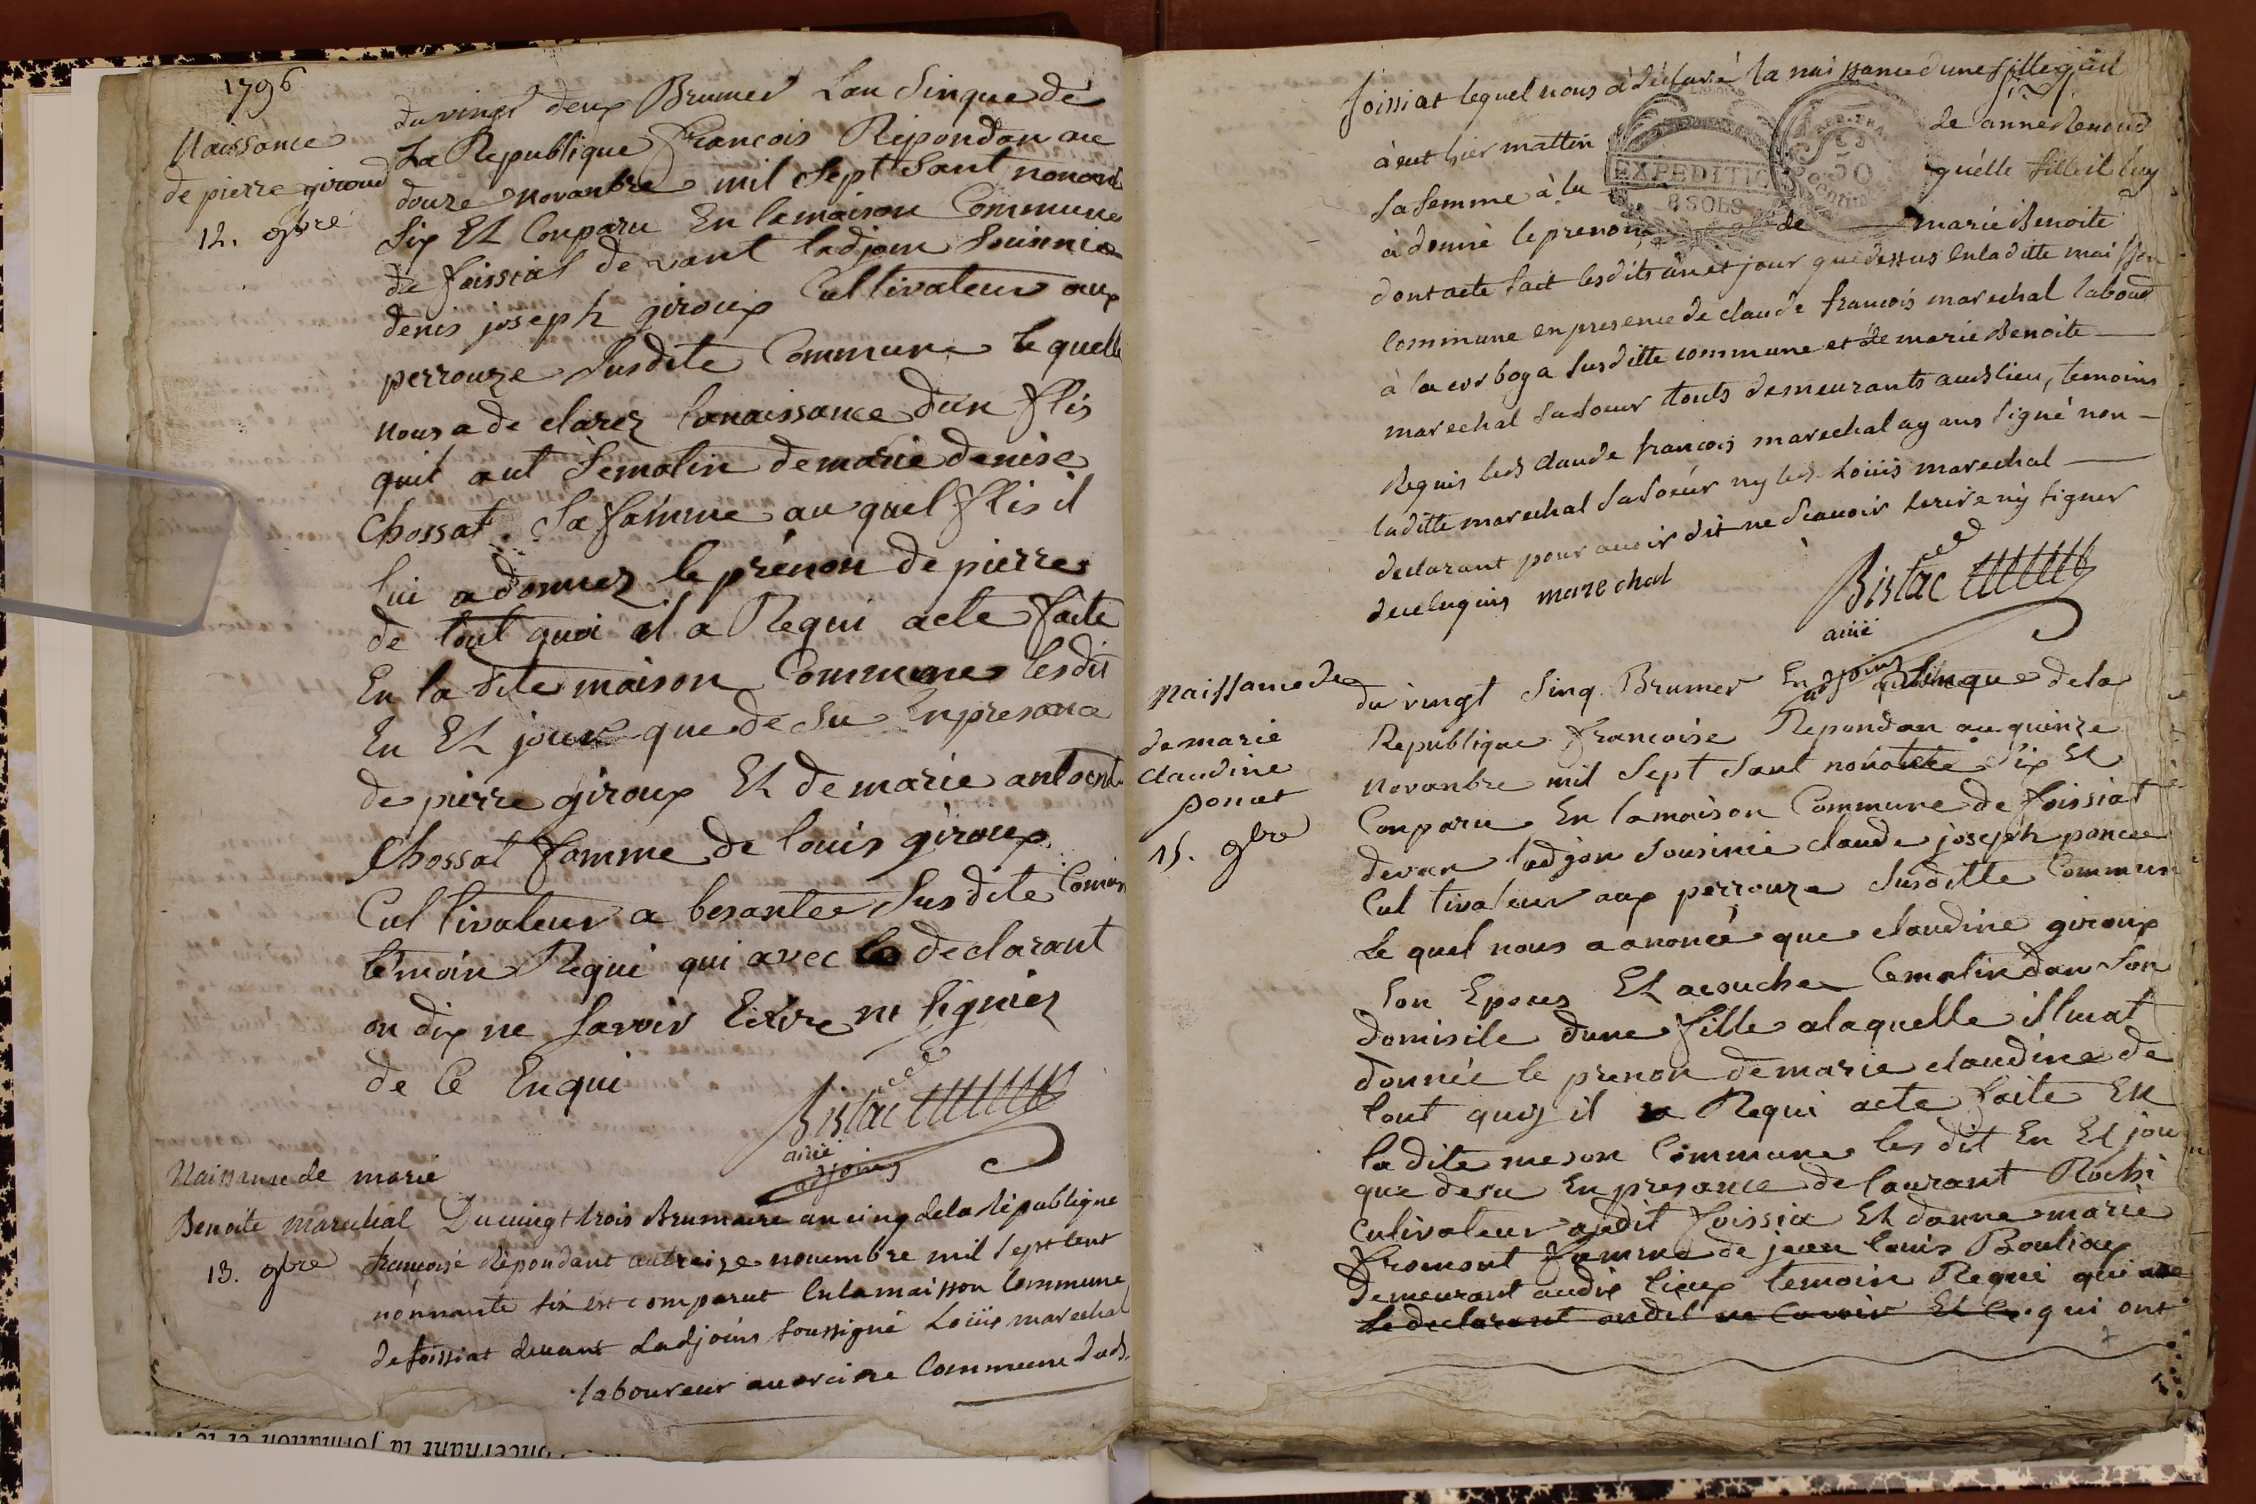 1796
Naissance
de pierre giroud
12. 9bre
du vingt deux Brumer Lan Sinque de
La Republique francois Repondon au
douze novanbre mil Sept Sant nonante
Six Et Conparu En lamaison Commune
de foissiat devant ladjoin Sousinie
denis joseph giroux Cultivateur aux
perrouze Susdite Commune le quelle
nous a de clarez lanaissance dun flis
quil aut Sematin demarie denise
Chossat Sa famme au quel flis il
lui a donnez le prénon de pierre
de tout quoi il a Requi acte faite
En la dite maison Commune lesdit
En Et jour que de Su Enpresance
de pierre giroux Et de marie antoent
Chossat famme de louis giroux
Cultivateur a besantee Susdite
témoin Requi qui avec le declarant
on dix ne Savoir Ecrire ni Signiez
de Ce Enqui
Bistac
ainé
adjoint
Naissance de marie
Benoite marechal
13. 9bre
Du vingt trois Brumaire an cinq de la République
francoise Répondant au treize novembre mil Sept cent
nonnante six est comparut en la maisson Commune
de foissiat devant Ladjoins Soussigné Loüis marechal
laboureur au Commune dud.
foissiat lequel nous a déclaré la naissance d'une fille quil
à eut hier mattin de anne Renoud
Sa femme à la quélle fille il luy
à donné le prenom de marie Benoite
EXPEDITIO
8 SOLS
REP. FRA
50
dont acte fait lesdits an et jour que dessus en la ditte maisson
Commune en presence de claude francois marechal laboud
à la susditte commune et de marie Benoite
marechal Sa Soeur touts demeurants aud lieu, temoins
Requis led claude francois marechal ayans signé non
laditte marechal Sa Soeur ny led. Loüis marechal
declarant pour avoir dit ne Scavoir lerire ny Signer
dece enquis marechal
Bistac
ainé
adjoint
Naissance de
de marie
claudine
poncet
15. 9bre
du vingt Sinq Brumer En Sinque dela
Republique francoise Repondan au quinze
Novanbre mil Sept Sant nonante Six Et
Conparu En lamaison Commune de foissiat
devan ladjon Sousinie claude joseph poncee
Cul tivateur aux perrouze Susditte Commun
Le quel nous a anoncé que claudine giroux
Son Epous Et acouche Cematin dan Son
domisile dune fille alaquelle il luiat
donnéé le prenon demarie claudine de
tout quoy il a Requi acte faite En
la dite meson Commune les dit En Et jour
que desu En presance de laurant Rochi
Cultivateur audit foissia Et danne marie
fromont famme de jean louis Boulioux
demeurant audit lieux temoin Requi qui
le declarant ondit ne Savoir Et Ce qui ont